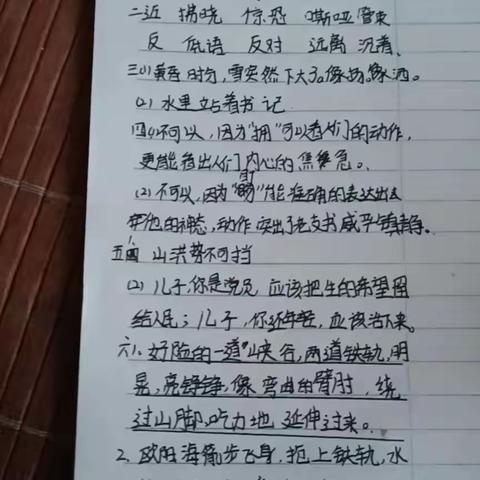 二近 揭晓 惊恐 嘶哑 管束
反 低语 反对 远离 沉着.
三(1)黄昏时分,雪突然下大了。像扬。像洒。
(2) 水里站着书记.
四(1)不可以,因为"拥"可以看人们的动作,
更能看出人们内心的焦急。.
(2) 不可以,因为"瞪"能准确的表达出
他的神态,动作突出了老支书威严镇静。
五 山洪势不可挡
(2) 儿子,你是党员 应该把生的希望留
给人民; 儿子,你还年轻,应该活下来。
六1. 好险的一道峡谷,两道铁轨,明
晃,亮铮铮,像弯曲的臂肘,绕
过山脚,吃力地延伸过来。.
2. 欧阳海箭步飞身,抢上铁轨,水